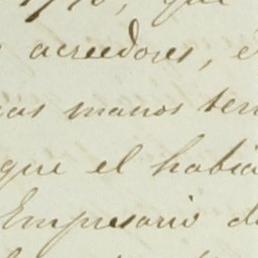 que
acreedores, e
as manos ten
que el habia
Empresario d